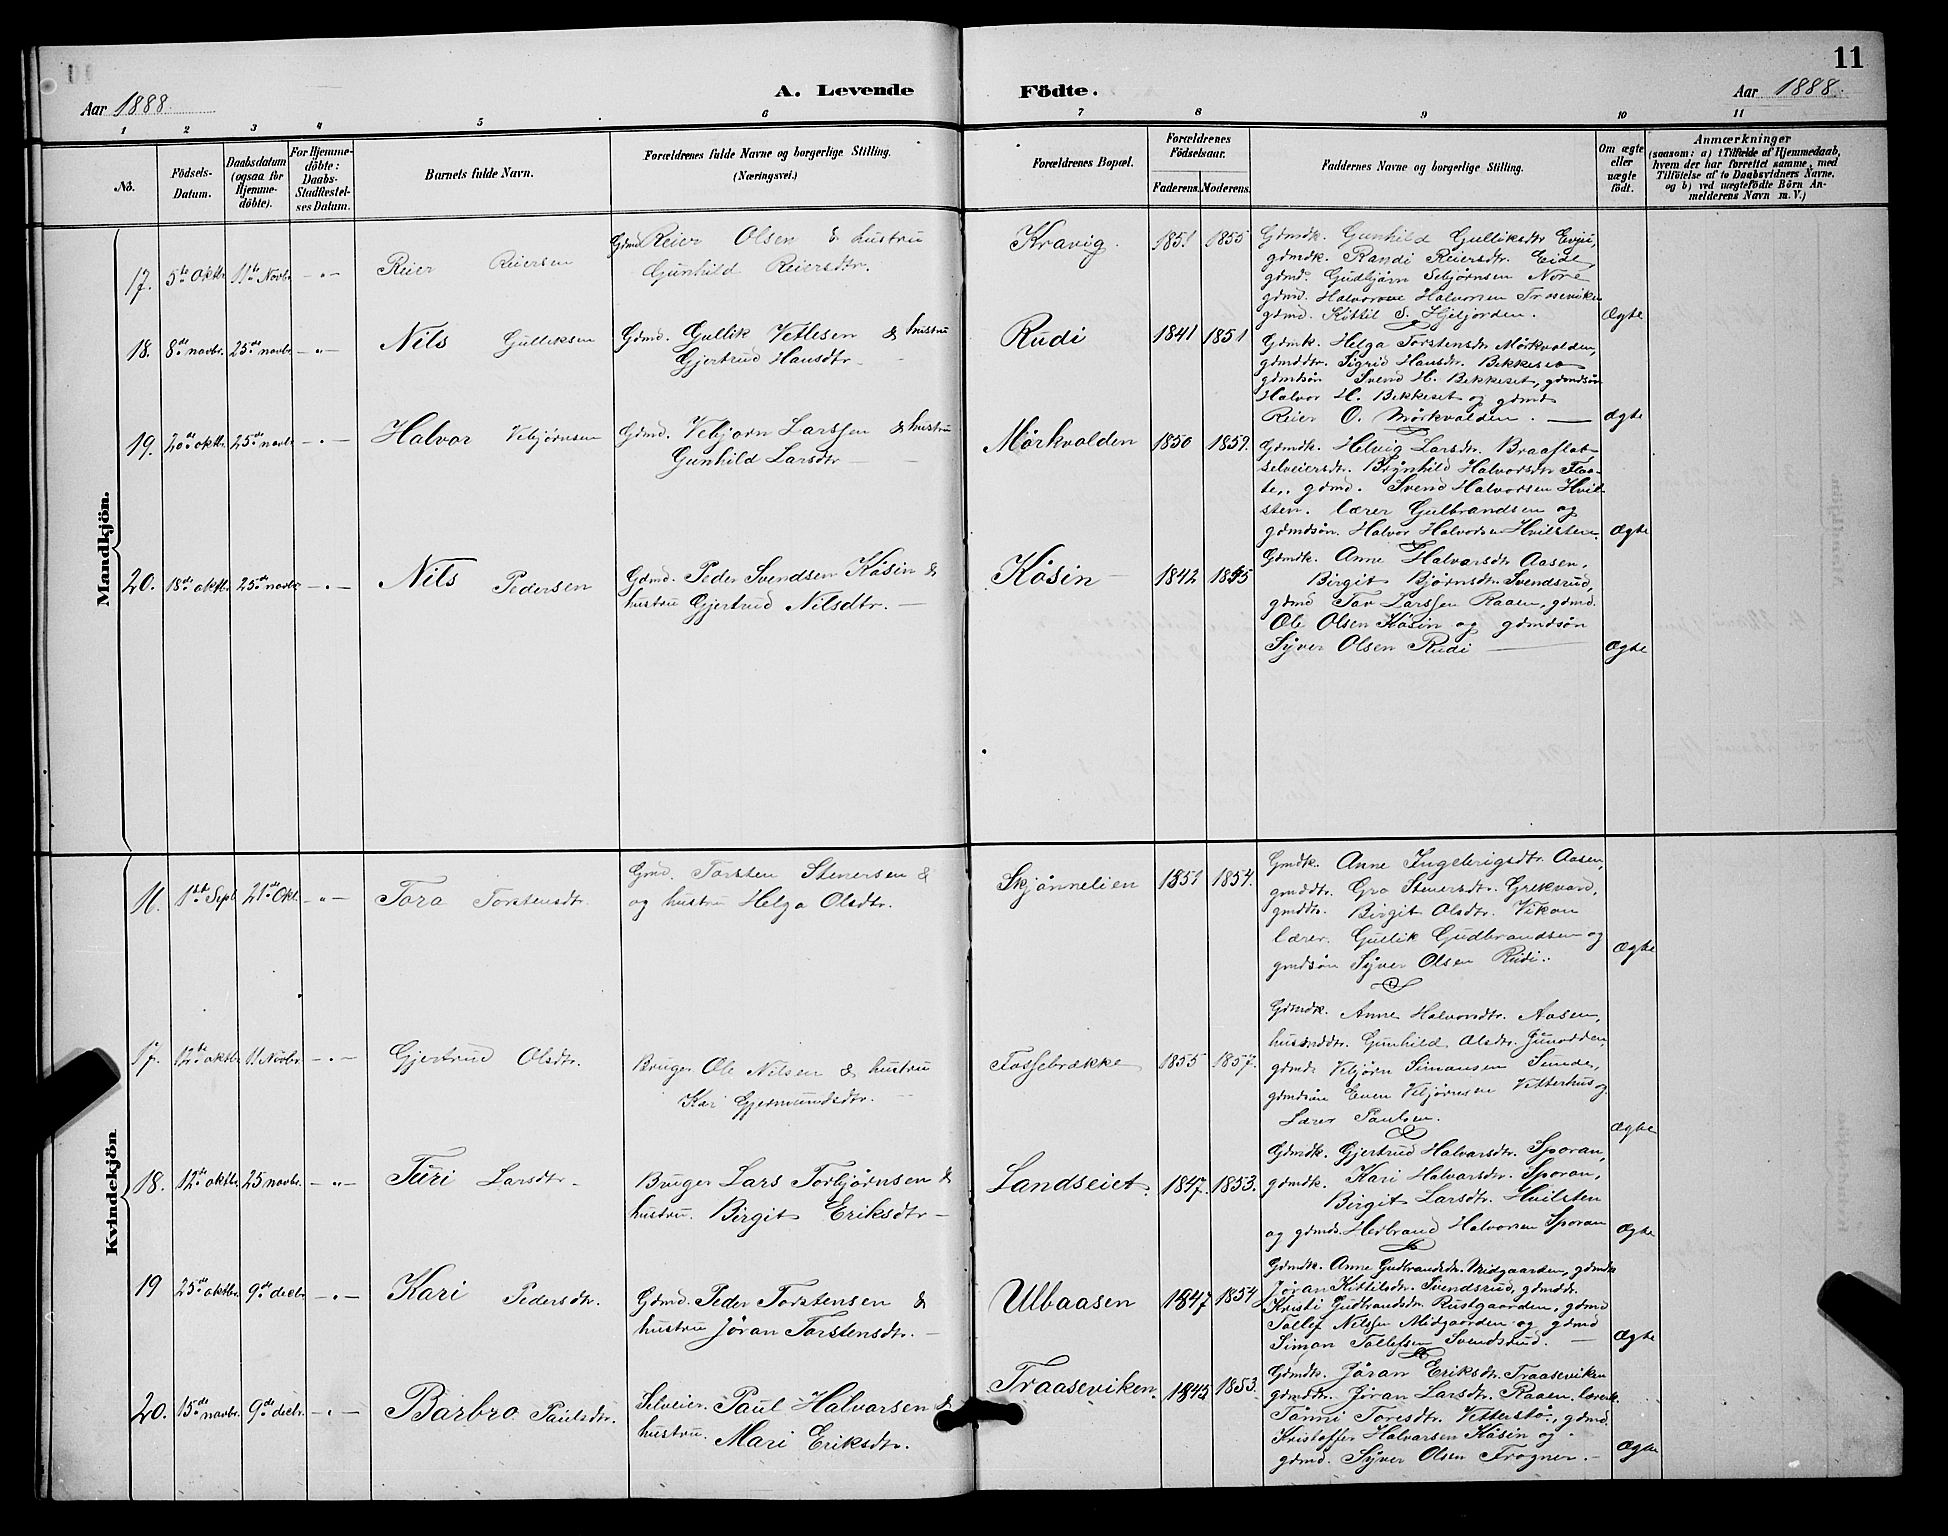 11
Aar 1888. A. Levende Födte. Aar 1888.
1 2 3 4 5 6 7 8 9 10 11
No.
Födsels-
Datum.
Daabsdatum
(ogsaa for
Hjemme-
döbte).
For Hjemme-
döbte:
Daabs-
Stadfestel-
ses Datum.
Barnets fulde Navn.
Forældrenes fulde Navne og borgerlige Stilling.
(Næringsvei.)
Forældrenes Bopæl.
Forældrenes
Födselsaar.
Faderens. Moderens.
Faddernes Navne og borgerlige Stilling.
Om ægte
eller
uægte
födt.
Anmærkninger
(saasom: a) i Tilfælde af Hjemmedaab,
hvem der har forrettet samme, med
Tilföielse af to Daabsvidners Navne,
og b) ved uægtefödte Börn An-
melderens Navn m. V.)
Mandkjön.
17. 5te Oktbr. 11te Novbr. -"- Reier Reiersen
Gdmd. Reier Olsen & hustru
Gunhild Reiersdtr.
Kravig. 1851 1855
Gdmdk. Gunhild Gulliksdtr
gdmdk. Randi Reiersdtr. Eide,
gdmd. Gudbjörn Sebjørnsen Nore
gdmd. Halvor Halvorsen
gdmd. Kittil S. Hjeljorden.
Ægte
18. 8de novbr. 25de novbr. -"- Nils Gulliksen
Gdmd. Gullik Vetlesen & hustru
Gjertrud Hansdtr. -
Rudi 1841 1851
Gdmk. Helga Torstensdtr Mörkvolden,
gdmddtr. Sigrid Hansdtr. Bekkeset
gdmdsön Svend H. Bekkeset, gdmdsön
Halvor H. Bekkeset og gdmd
Reier O. Mørkvolden. —
Ægte
19. 20de oktbr. 25de novbr. -"- Halvor Vebjørnsen
Gdmd. Vebjørn Larssen & hustru
Gunhild Larsdtr -
Mörkvolden 1850 1859.
Gdmdk. Helvig Larsdtr. Braaflat
selveiersdtr. Brynhild Halvorsdtr Flaa-
te, gdmd. Svend Halvorsen Hvil-
sten. lærer Gulbrandsen og
gdmdsön. Halvor Halvorsen Hvilsten.
Ægte
20. 18de oktbr. 25de novbr. -"- Nils Pedersen
Gdmd. Peder Svendsen Kåsin &
hustru Gjertrud Nilsdtr. —
Kåsin — 1842
Gdmdk. Anne Halvarsdtr Aasen,
Birgit Bjørnsdtr. Svendsrud,
gdmd Tov Larssen Raaen, gdmd.
Ole Olsen Kåsin og gdmdsön
Syver Olsen Rudi —
Ægte
Kvindekjön
16. 1ste Septb. 21de Okt. -"- Tora Torstensdtr.
Gmd. Torsten Stenersen &
og hustru Helga Olsdtr.
Skjönnelien 1851 1854.
Gmdk. Anne Ingebrigsdtr. Aasen,
gmddtr. Gro Stenersdtr. Grekvard,
gmddtr. Birgit Olsdtr. Vikan
lærer. Gullik Gudbrandsen og
gmdsön Syver Olsen Rudi.
Ægte
17. 12te oktbr. 11 Novbr. -"- Gjertrud Olsdtr.
Bruger Ole Nilsen & hustru
Kari Gjermundsdtr. —
Fossebrække 1855 1857.
Gdmdk. Anne Halvorsdtr. Aasen,
Gunhild Olsdtr.
gdmd. Vebjørn Simonsen Sunde,
gdmdsön Even Vebjørnsen Vetterhus og
Lærer Paulsen.
Ægte
18. 12te oktbr. 25 novbr. -"- Turi Larsdtr -
Bruger Lars Torbjörnsen &
hustru. Birgit Eriksdtr -
Landseiet. 1847. 1853.
Gdmdk. Gjertrud Halvarsdtr. Sporan,
gdmdk. Kari Halvarsdtr. Sporan,
Birgit Larsdtr. Hvilsten
og gdmds. Herbrand Halvorsen Sporan
Ægte
19 25de oktbr. 9de decbr. -"- Kari Pedersdtr.
Gdmd. Peder Torstensen &
hustru Jöran Torstensdtr. —
Ulbaasen 1847 1854
Gdmdk. Anne Gudbrandsdtr. Midgaarden, gdmdk
Jöran Kittilsdtr. Svendsrud, gdmddtr.
Kristi Gudbrandsdtr. Rustgaarden, gdmd
Tollef Nilssen Midgaarden og gdmd
Simon Tollefsen Svendsrud. —
Ægte
20. 15de novbr. 9de decbr. -"- Barbro Paulsdtr.
Selveier. Paul Halvarsen &
hustru. Mari Eriksdtr.
Traaseviken. 1845 1853.
Gdmdk. Jöran Eriksdtr. Traaseviken
gdmddtr. Jöran Larsdtr. Raaen,
Tönni Toresdtr. gdmd.
Kristoffer Halvarsen Kåsin og
gdmd. Syver Olsen Frogner. —
Ægte